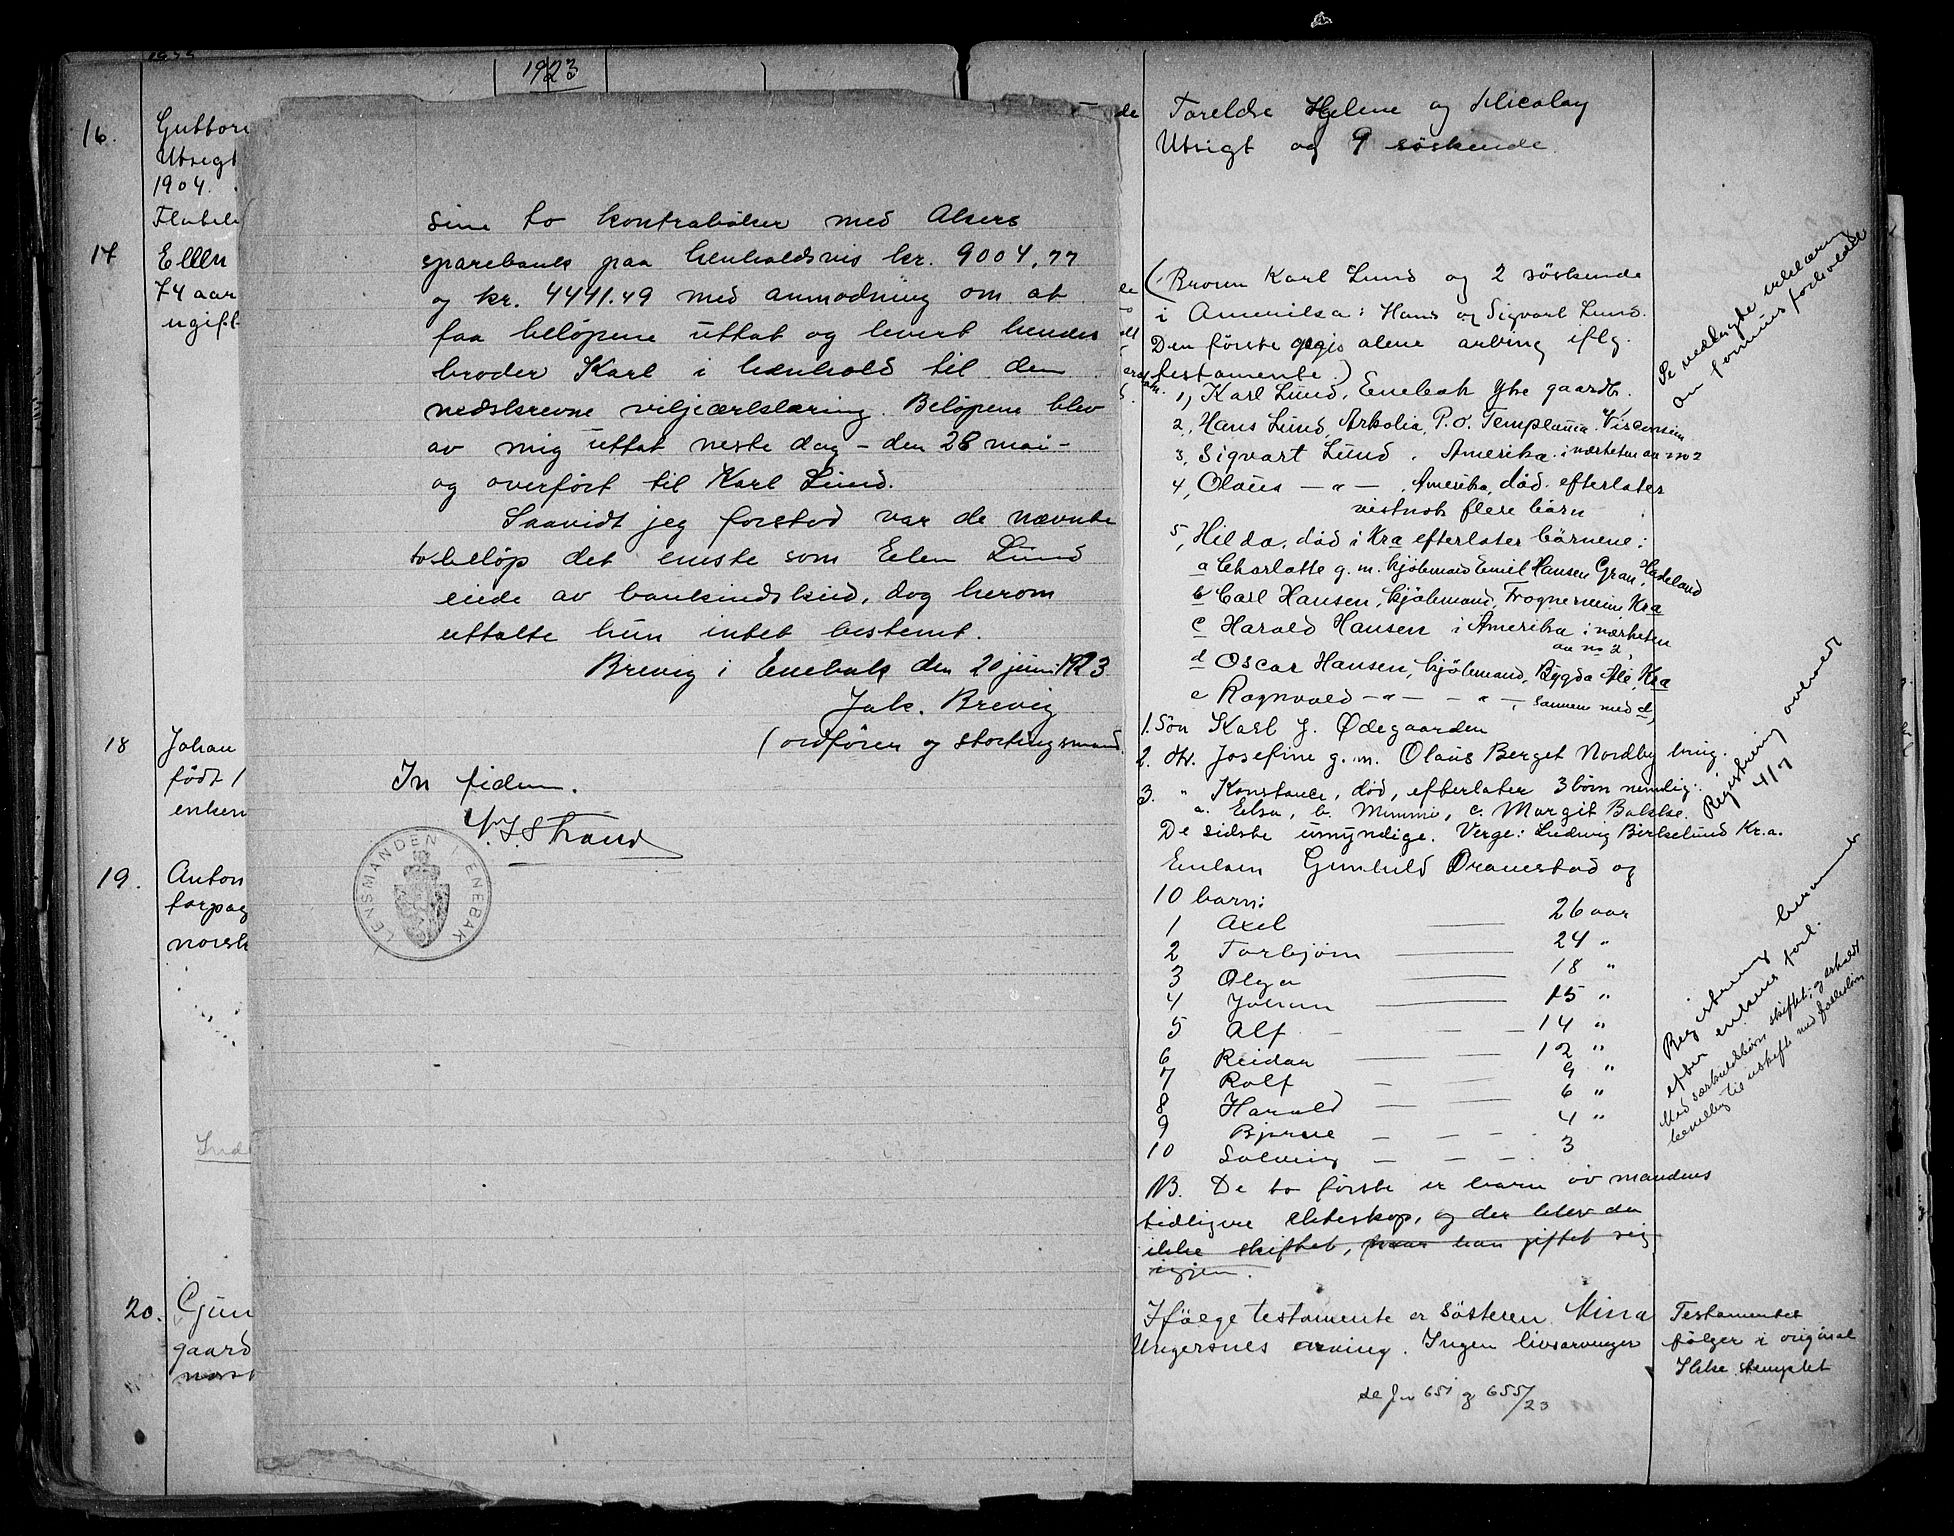 1923
16.
Guttor
Utsigt
1904.
Flateb
17
Ellen
74 aar
ugift
18
Johan
født 1
enkem
19.
Anton
forpag
norsk
20.
Gun
gaard
norsk
sine to kontrabøker med Akers
sparebank paa henholdsvis kr. 9004,77
og kr. 4441.49 med anmodning om at
faa beløpene uttat og levert hendes
broder Karl i henhold til den
nedskrevne viljeærklæring. Beløpene blev
av mig uttat neste dag – den 28 mai –
og overført til Karl Lund.
Saavidt jeg forstod var de nævnte
to beløp det eneste som Elen Lund
eiede av bankindskud, dog herom
uttalte hun intet bestemt.
Brevig i Enebak den 20 juni 1923.
Jak. Brevig
(ordfører og stortingsmand
In fidem.
Strand
LENSMANDEN I ENEBAK
Foreldre Helene og Nicolay
Utsigt og 9 søskende
(Broren Karl Lund og 2 søskende
i Amerika: Hans og Sigvart Lund.
Den første alene arving iflg.
testamente.)
1, Karl Lund, Enebak Ytre gaardb.
2, Hans Lund, Arkolia, P.O. Wisconsin
3, Sigvart Lund, Amerika i nærheten av no 2
4, Olaus — " — , Amerika, død. efterlater
vistnok flere børn
5, Hilda, død i Kra efterlater børnene:
a Charlotte g. m. kjøbmand Emil Hansen Gran, Hadeland
b Carl Hansen, kjøbmand, Frognerveien Kra
c Harald Hansen i Amerika i nærheten
av no 2,
d Oscar Hansen, kjøbmand, Bygdø Alle, Kra
e Ragnvald — " — — " — , sammen med d)
1. Søn Karl J. Ødegaarden
2. dtr. Josefine g. m. Olaus Berget Nordby brug.
3. " Konstance, død, efterlater 3 børn nemlig:
a. Elsa, b. Mimmi, c. Margit Bakke.
De sidste umyndige. Verge: Ludvig Birkelund Kr.a.
Enken Gunhild Oravestad og
10 barn:
1 Axel — 26 aar
2 Torbjørn — 24 "
3 Olga — 18 "
4 Johan — 15 "
5 Alf — 14 "
6 Reidar — 12 "
7 Rolf — 9 "
8 Harald — 6 "
9 Bjarne — 4 "
10 Solveig — 3
NB. De to første er barn av mandens
tidligere ekteskap, og der blev da
ikke skiftet, han giftet sig
igjen.
Ifølge testamente er søsteren Mina
Ungersnes arving. Ingen livsarvinger
se Jn 651 og 655/23
Se vedlagte erklæring
om formuesforholdet
Registrering avholdt
4/7
Registrering
efter enkens forl.
Med særkuldsbørn skiftet, og erholdt
bevilling til uskifte med fællesbørn
Testamentet
følger i original
Ikke stemplet